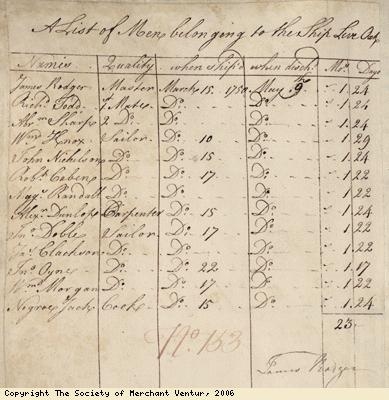 A List of Men belonging to the Ship Live Oak
Names Quality when Ship'd when disch: Mo: Days
James Rodger Master March 15 1750 May 9th 1 24
Richd. Todd 1 Mate Do. Do. 1 24
Abrm. Sharp 2 Do. Do. Do. 1 24
Wm. Knox Sailor Do. 10 Do. 1 29
John Nicholson Do. Do. 15 Do. 1 24
Robt. Do. Do. 17 Do. 1 22
Randall Do. Do. Do. 1 22
Alexr. Dunlop Carpenter Do. 15 Do. 1 24
Jno. Doble Sailor Do. 17 Do. 1 22
Clackson Do. Do. Do. 1 22
Jno. Pyne Do. Do. 22 Do. 1 17
Wm. Morgan Do. Do. 17 Do. 1 22
Negroe Jack Cook Do. 15 Do. 1 24
23
No. 153
James Rodger
Copyright The Society of Merchant Ventur, 2006